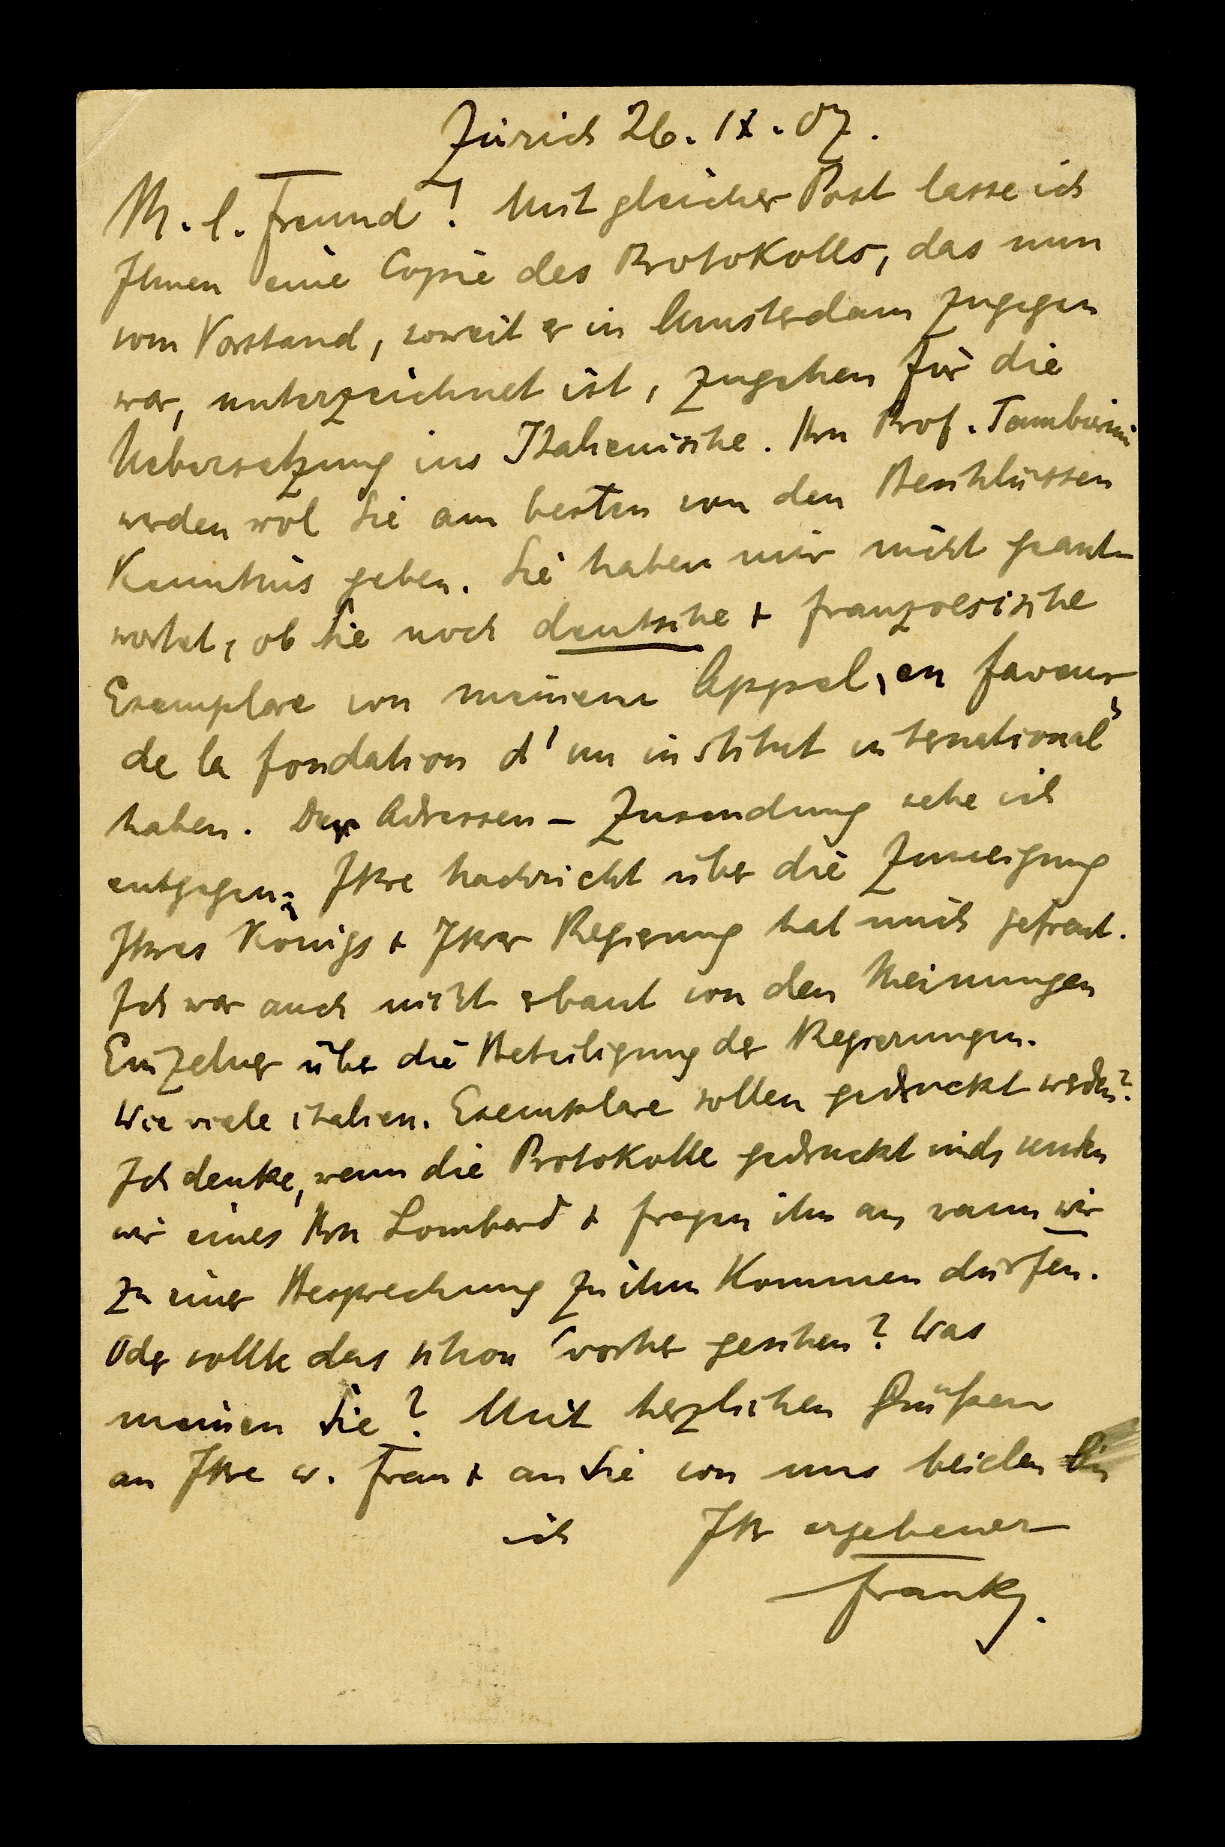 Zürich 26. IX. 07.
M. l. Freund! Mit gleicher Post lasse ich
Ihnen eine Copie des Protokolls, das nun
vom Vorstand, soweit er in Amsterdam zugegen
war, unterzeichnet ist, zugehen für die
Uebersetzung ins Italienische. Hrn Prof. Tamburini
werden wol Sie am besten von den Beschlüssen
Kenntnis geben. Sie haben mir nicht geant-
wortet, ob Sie noch deutsche + franzoesische
Exemplare von meinem Appel „en faveur
de la fondation d'un institut international"
haben. Der Adressen-Zusendung sehe ich
entgegen. Ihre Nachricht über die Zuneigung
Ihres Königs + Ihrer Regierung hat mich gefreut.
Ich war auch nicht erbaut von den Meinungen
Einzelner über die Beteiligung der Regierungen.
Wie viele italien. Exemplare sollen gedruckt werden?
Ich denke, wenn die Protokolle gedruckt sind, senden
wir eines Hrn Lombard + fragen ihn an, wann wir
zu einer Besprechung zu ihm Kommen dürfen.
Oder sollte das schon vorher geschehen? Was
meinen Sie? Mit herzlichen Grüßen
an Ihre w. Frau + an Sie von uns beiden bin
ich Ihr ergebener
Frank.